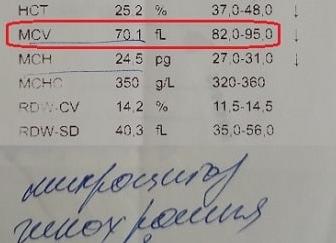 HCT 25.2 % 37,0-48,0 ↓
MCV 70.1 fL 82,0-95,0 ↓
MCH 24.5 pg 27,0-31,0 ↓
MCHC 350 g/L 320-360
RDW-CV 14,2 % 11,5-14,5
RDW-SD 40,3 fL 35,0-56,0
микроцитоз
гипохромия